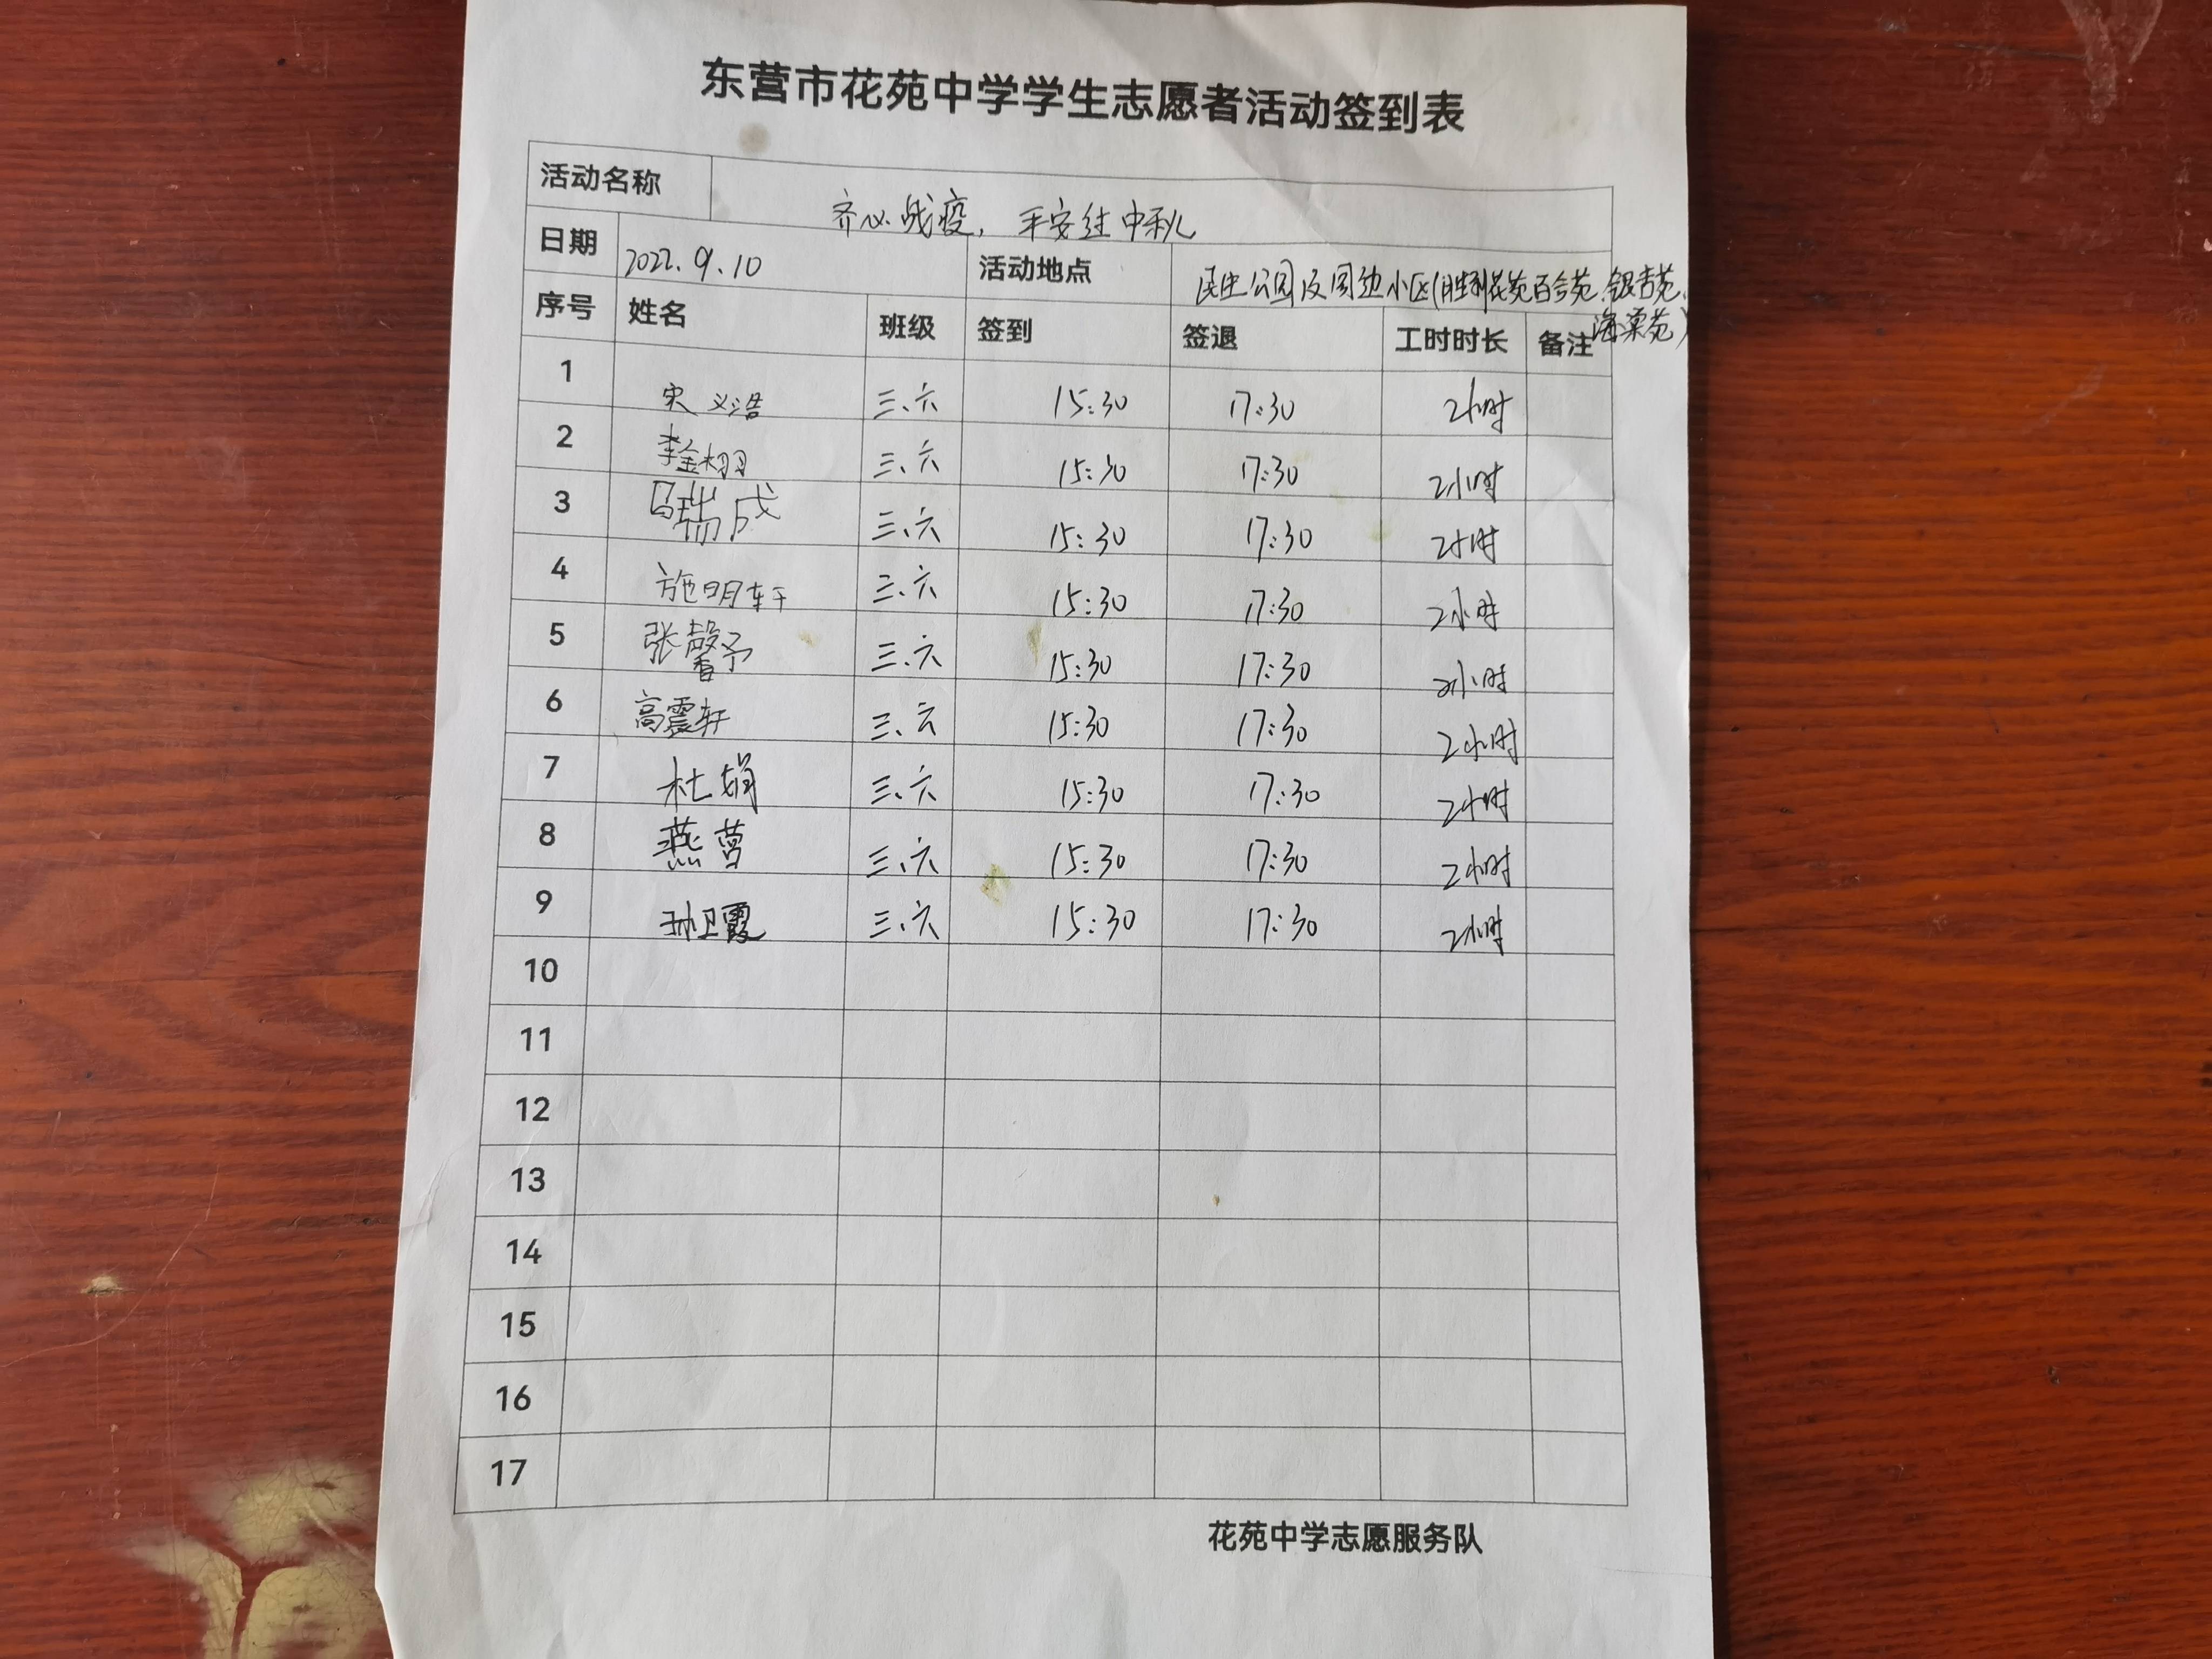 东营市花苑中学学生志愿者活动签到表
活动名称 齐心战疫，平安过中秋
日期 2022.9.10 活动地点 民生公园及周边小区(胜利花苑百合苑、银杏苑、
海棠苑)
序号 姓名 班级 签到 签退 工时时长 备注
1 宋义浩 三、六 15:30 17:30 2小时
2 李金栩 三、六 15:30 17:30 2小时
3 瑞成 三、六 15:30 17:30 2小时
4 施明轩 三、六 15:30 17:30 2小时
5 张馨予 三、六 15:30 17:30 2小时
6 高震轩 三、六 15:30 17:30 2小时
7 杜娟 三、六 15:30 17:30 2小时
8 燕 三、六 15:30 17:30 2小时
9 孙卫霞 三、六 15:30 17:30 2小时
10
11
12
13
14
15
16
17
花苑中学志愿服务队